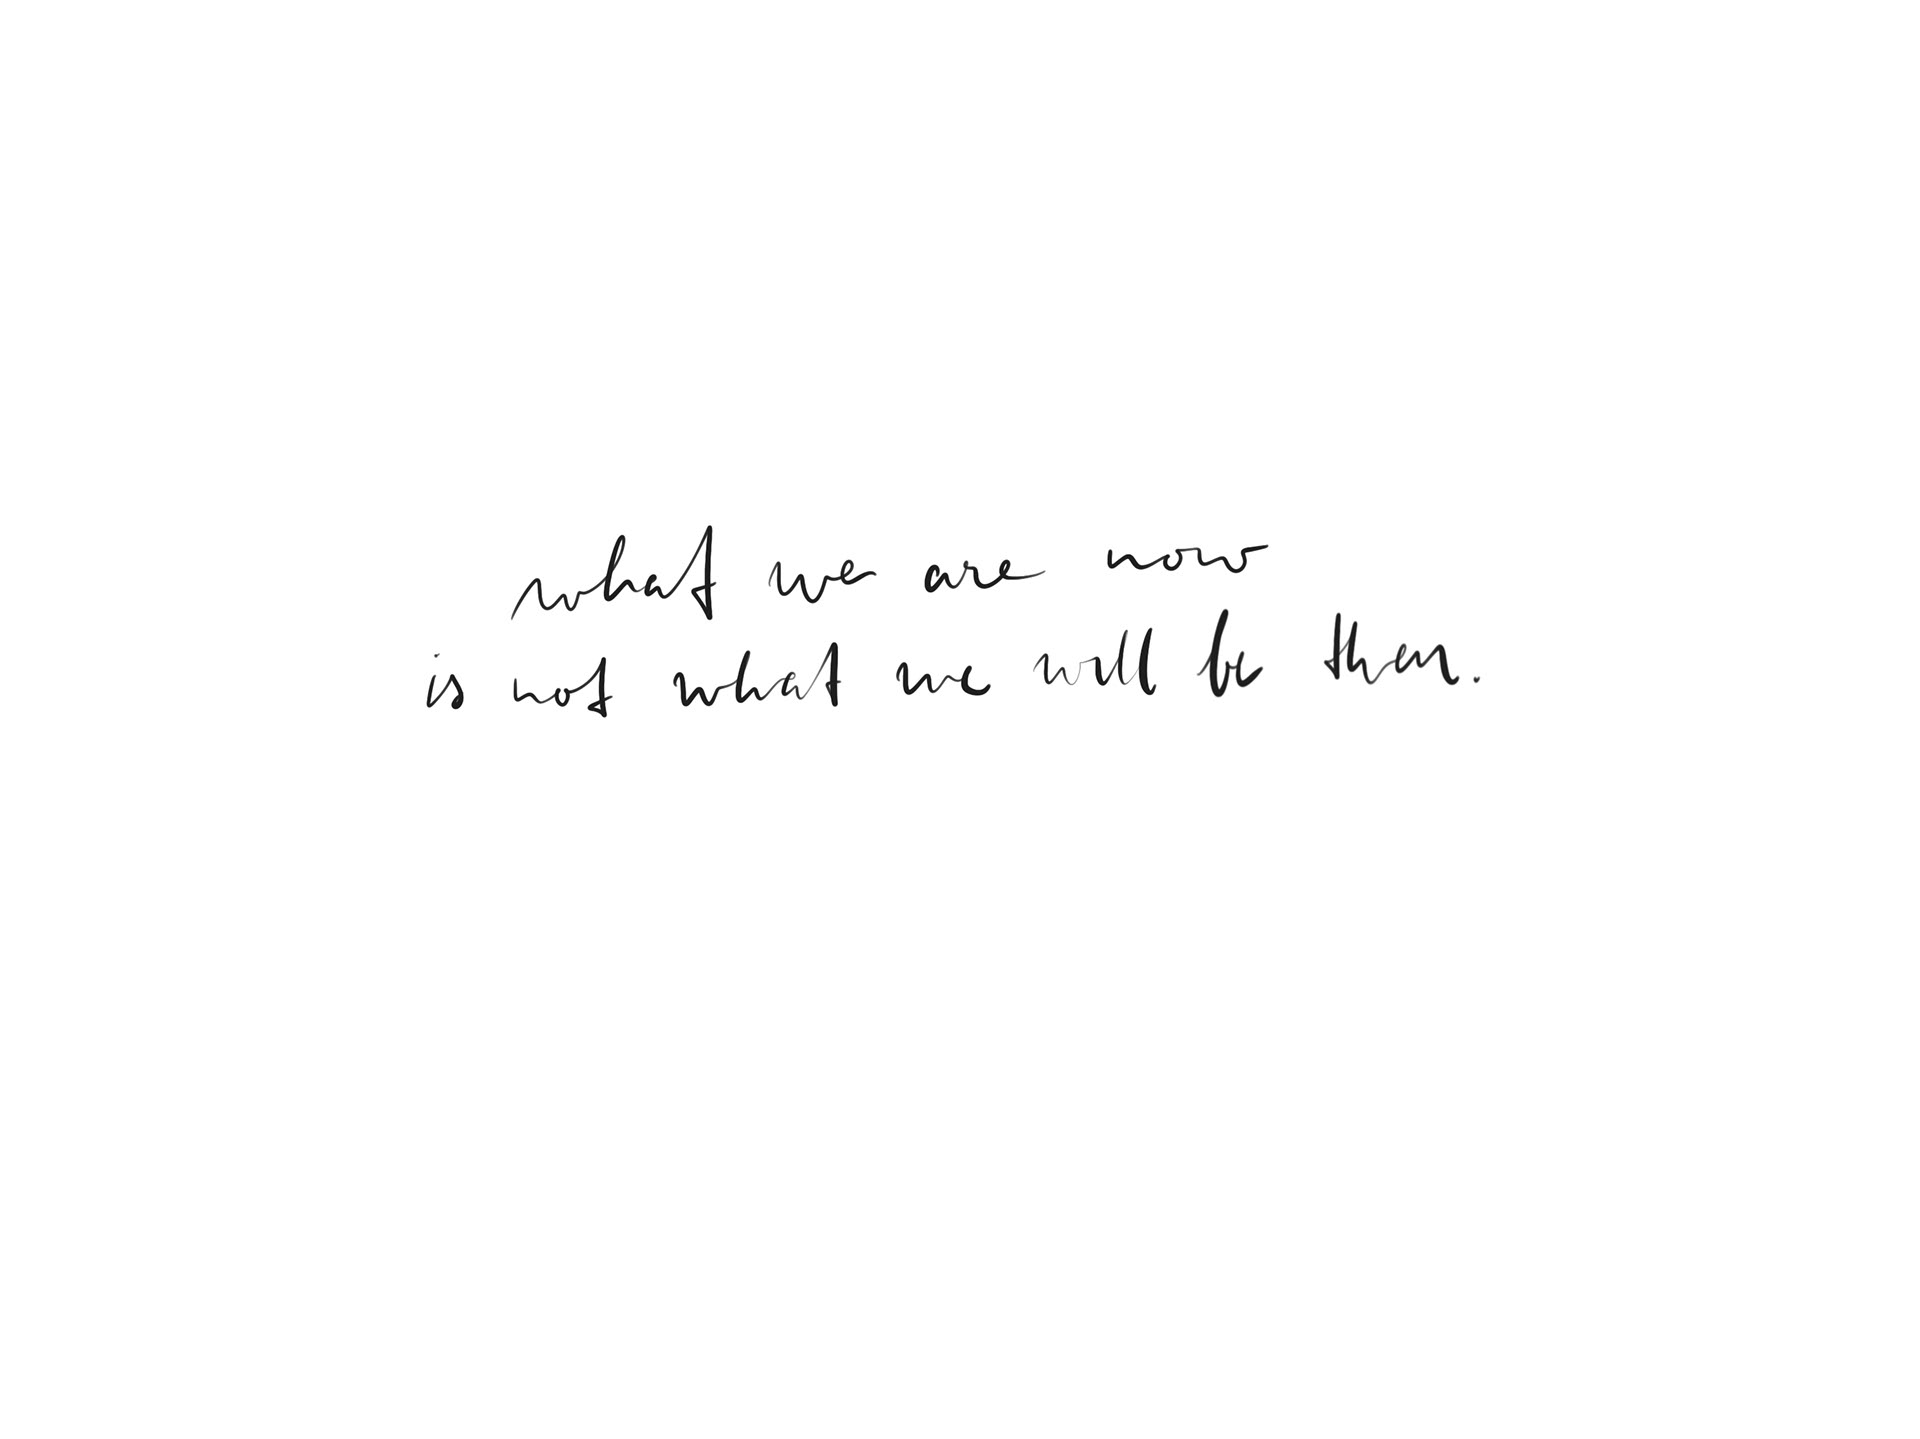 what we are now
is not what we will be then.